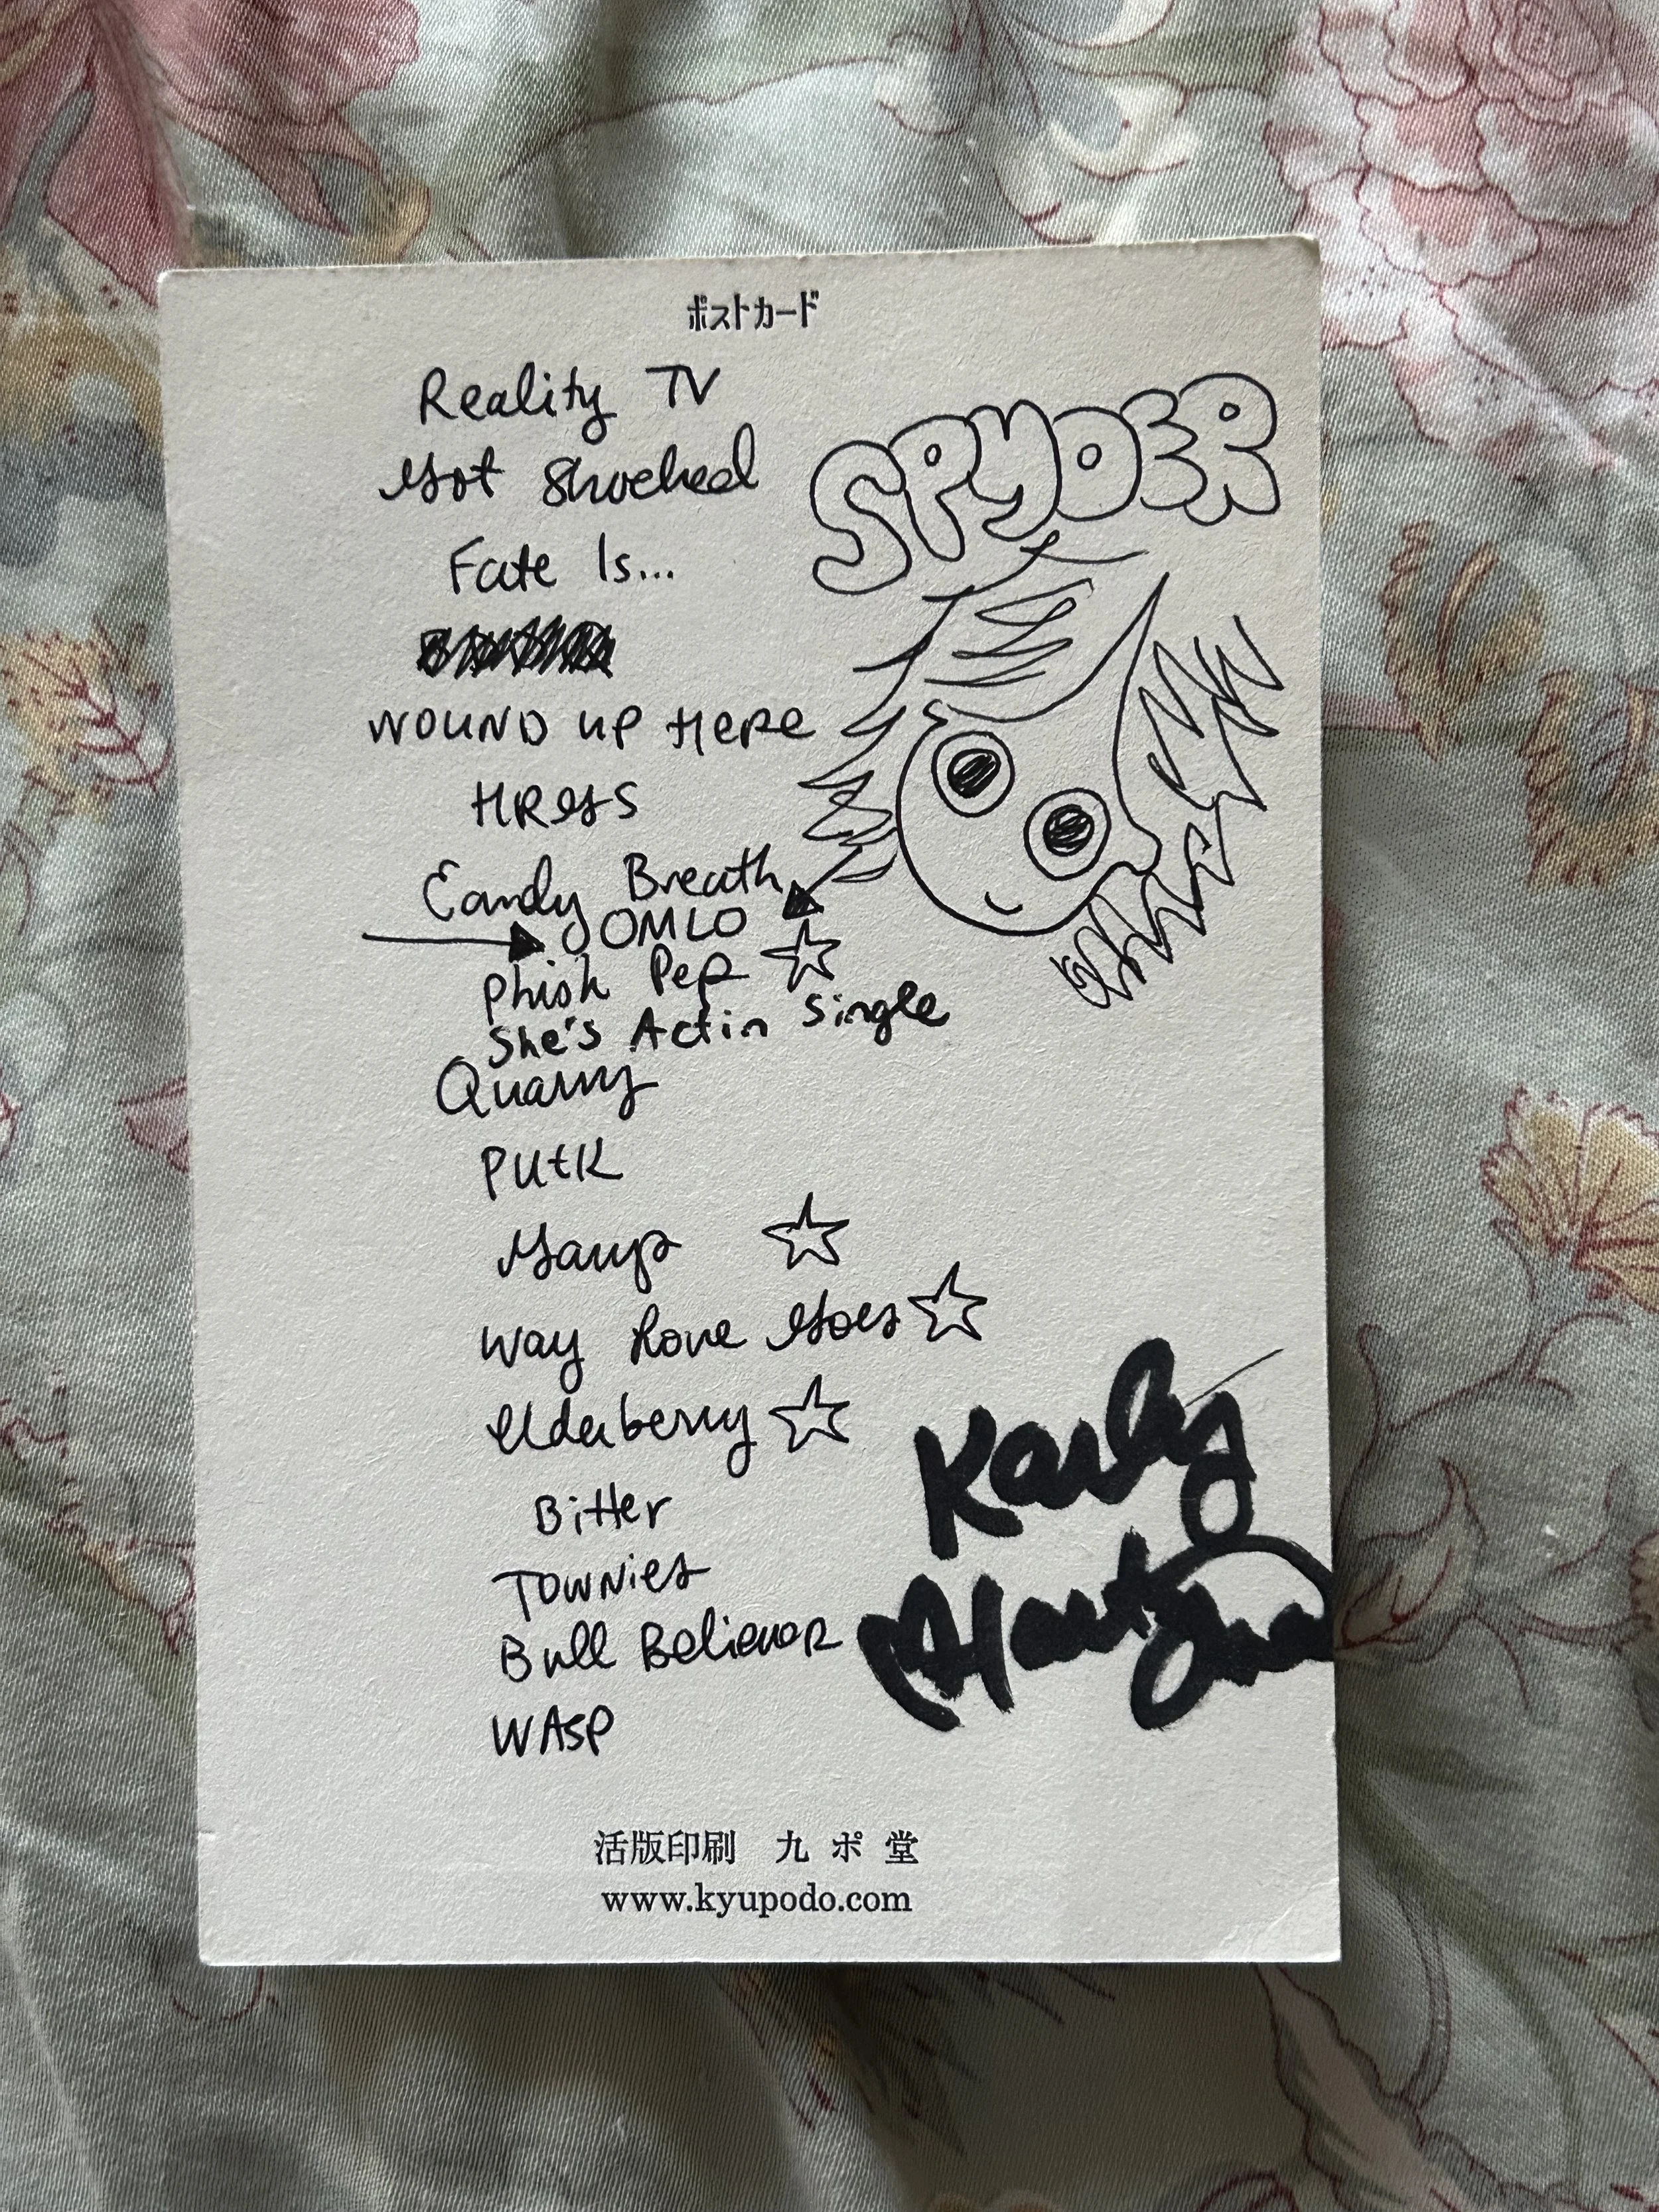 ポストカード
Reality TV
Got Shocked
SPYDER
Fate Is...
WOUND UP HERE
HRGTS
Candy Breath
JOMLO
Phish Pep
She's Actin Single
Quarry
PUtK
Gary's
Way Love Goes
Elderberry
Bitter
Townies
Bull Believer
WASP
Karly
Hartzman
活版印刷 九ポ堂
www.kyupodo.com